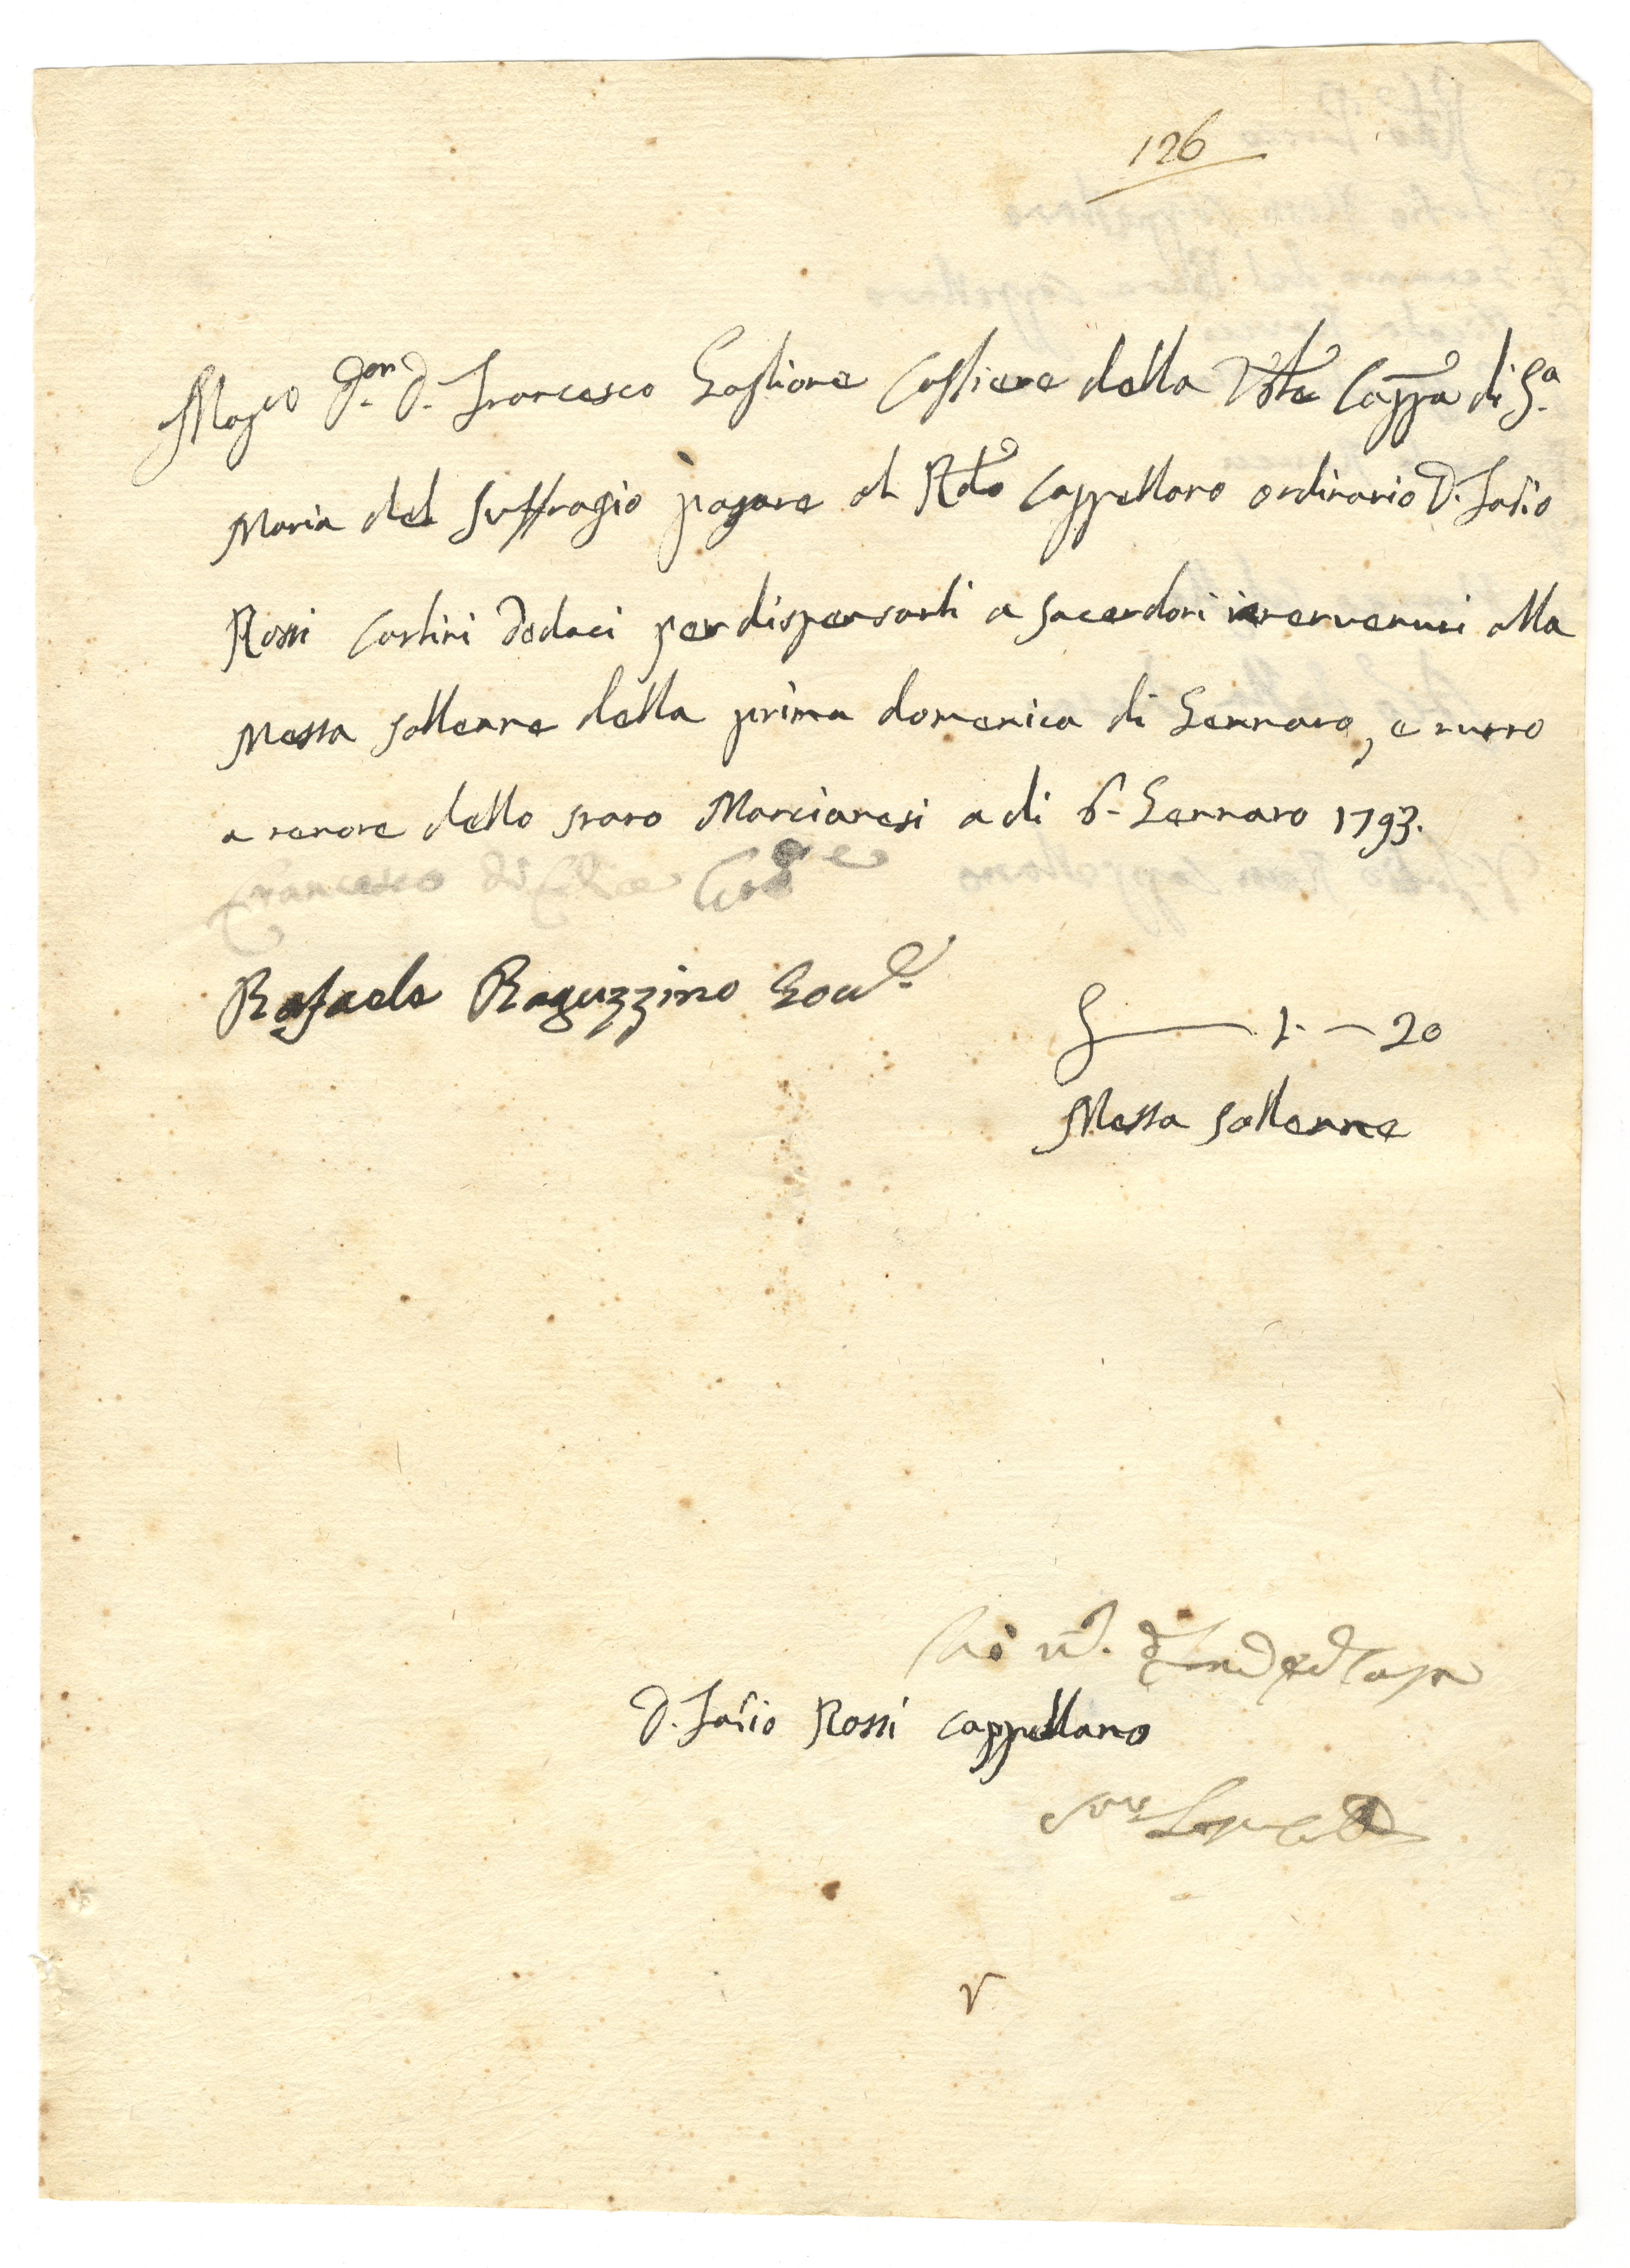 126
Mag.co D.on D. Francesco Gaglione Cassiere della V.ble Capp.a di S.a
Maria del Suffragio pagare al R.do Cappellano ordinario D. Sosio
Rossi Carlini dodaci per dispensarli a sacerdoti intervenuti alla
Messa sollenne della prima domenica di Gennaro, e tutto
a tenore dello stato Marcianesi a di 6. Gennaro 1793.
Francesco di
Rafaele Raguzzino Gov.e
1. — 20
Messa sollenne
D. Sosio Rossi Cappellano